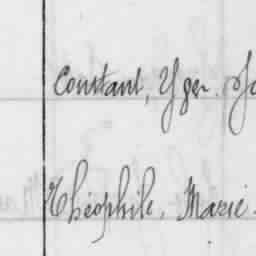 Constant, Yger.
Théophile, Marie.